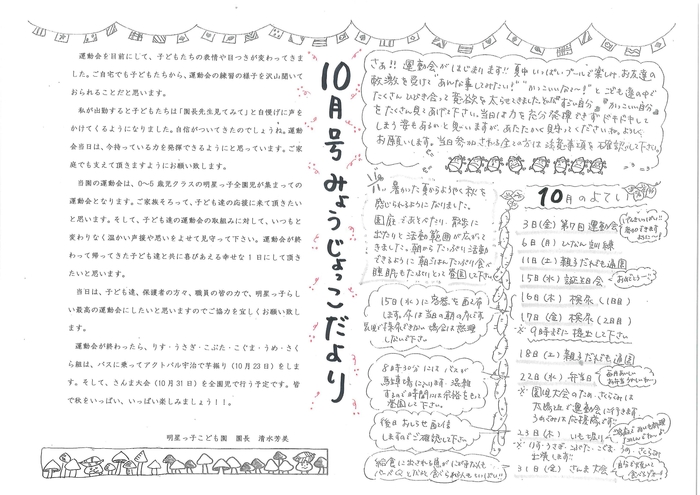 10月号 みょうじょっこだより
運動会を目前にして、子どもたちの表情や目つきが変わってきま
した。ご自宅でも子どもたちから、運動会の練習の様子を沢山聞いて
おられることだと思います。
私が出勤すると子どもたちは「園長先生見てみて」と自慢げに声を
かけてくるようになりました。自信がついてきたのでしょうね。運動
会当日は、今持っている力を発揮できるようにと思っています。ご家
庭でも支えて頂きますようにお願い致します。
当園の運動会は、0～5歳児クラスの明星っ子全園児が集まっての
運動会となります。ご家族そろって、子ども達の応援に来て頂きたい
と思います。そして、子ども達の運動会の取組みに対して、いつもと
変わりなく温かい声援や思いをよせて見守って下さい。運動会が終
わって帰ってきた子ども達と共に喜びあえる幸せな1日にして頂き
たいと思います。
当日は、子ども達、保護者の方々、職員の皆の力で、明星っ子らし
い最高の運動会にしたいと思いますのでご協力を宜しくお願い致し
ます。
運動会が終わったら、りす・うさぎ・こぶた・こぐま・うめ・さく
ら組は、バスに乗ってアクトパル宇治で芋掘り（10月23日）をしま
す。そして、さんま大会（10月31日）を全園児で行う予定です。皆
で秋をいっぱい、いっぱい楽しみましょう！！。
明星っ子こども園　園長　清水芳美
さぁ!! 運動会がはじまります!! 真中いっぱいプールで楽しみ、お友達の
刺激を受けて"あんな事してみたい!" "かっこいいなぁ～!"とこども達の中で
をたくさん見てあげて下さい。当日は力を充分発揮できずドキドキして
しまう姿もあるかと思いますが、あたたかく見守ってくださいね。よろしく
お願いします。当日参加される全ての方は注意事項を確認して下さい。
暑かった夏からようやく秋を
感じられるようになりました。
園庭であそべたり、散歩に
出たりと活動範囲が広がって
きました。朝からたっぷり活動
できるように朝ごはんたっぷり食べ
睡眠もたっぷりとって登園して下さい
15日(水)に容器を直し
ます。尿は当日の朝の尿です。
しないで下さい
8時30分にはバスが
駐車場に入ります。混雑
するので時間に余裕をもって
登園して下さい。
後日おしらせ
しますのでご確認して下さい
10月のよてい
3日(金) 第7回運動会
6日(月) ひなん訓練
11日(土) 親子だれでも通園
15日(水) 誕生会
おめでとう
16日(木) 検尿(1日目)
17日(金) 検尿(2日目)
※9時までに提出して下さい
18日(土) 親子だれでも通園
22日(水) 弁当日
23日(木) いも堀り
※りす・うさぎ・こぶた・こぐま・
31日(金) さんま大会